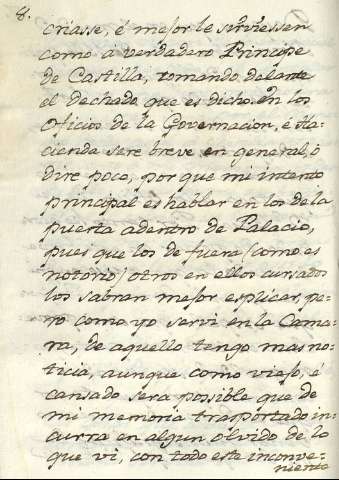 8.
criasse, é mejor le sirviessen
como a verdadero Principe
de Castilla, tomando delante
el dechado que es dicho. en los
Oficios de la Governacion, é Ha-
cienda seré breve en general, ó
dire poco, por que mi intento
principal es hablar en los de la
puerta adentro de Palacio,
pues que los de fuera (como es
notorio) otros en ellos cursados
los sabran mejor esplicar, pe-
ro como yo servi en la Cama-
ra, de aquello tengo mas no-
ticia, aunque como viejo, é
cansado sera possible que de
mi memoria trasportado in-
curra en algun olvido de lo
que vi, con todo este inconve-
niente